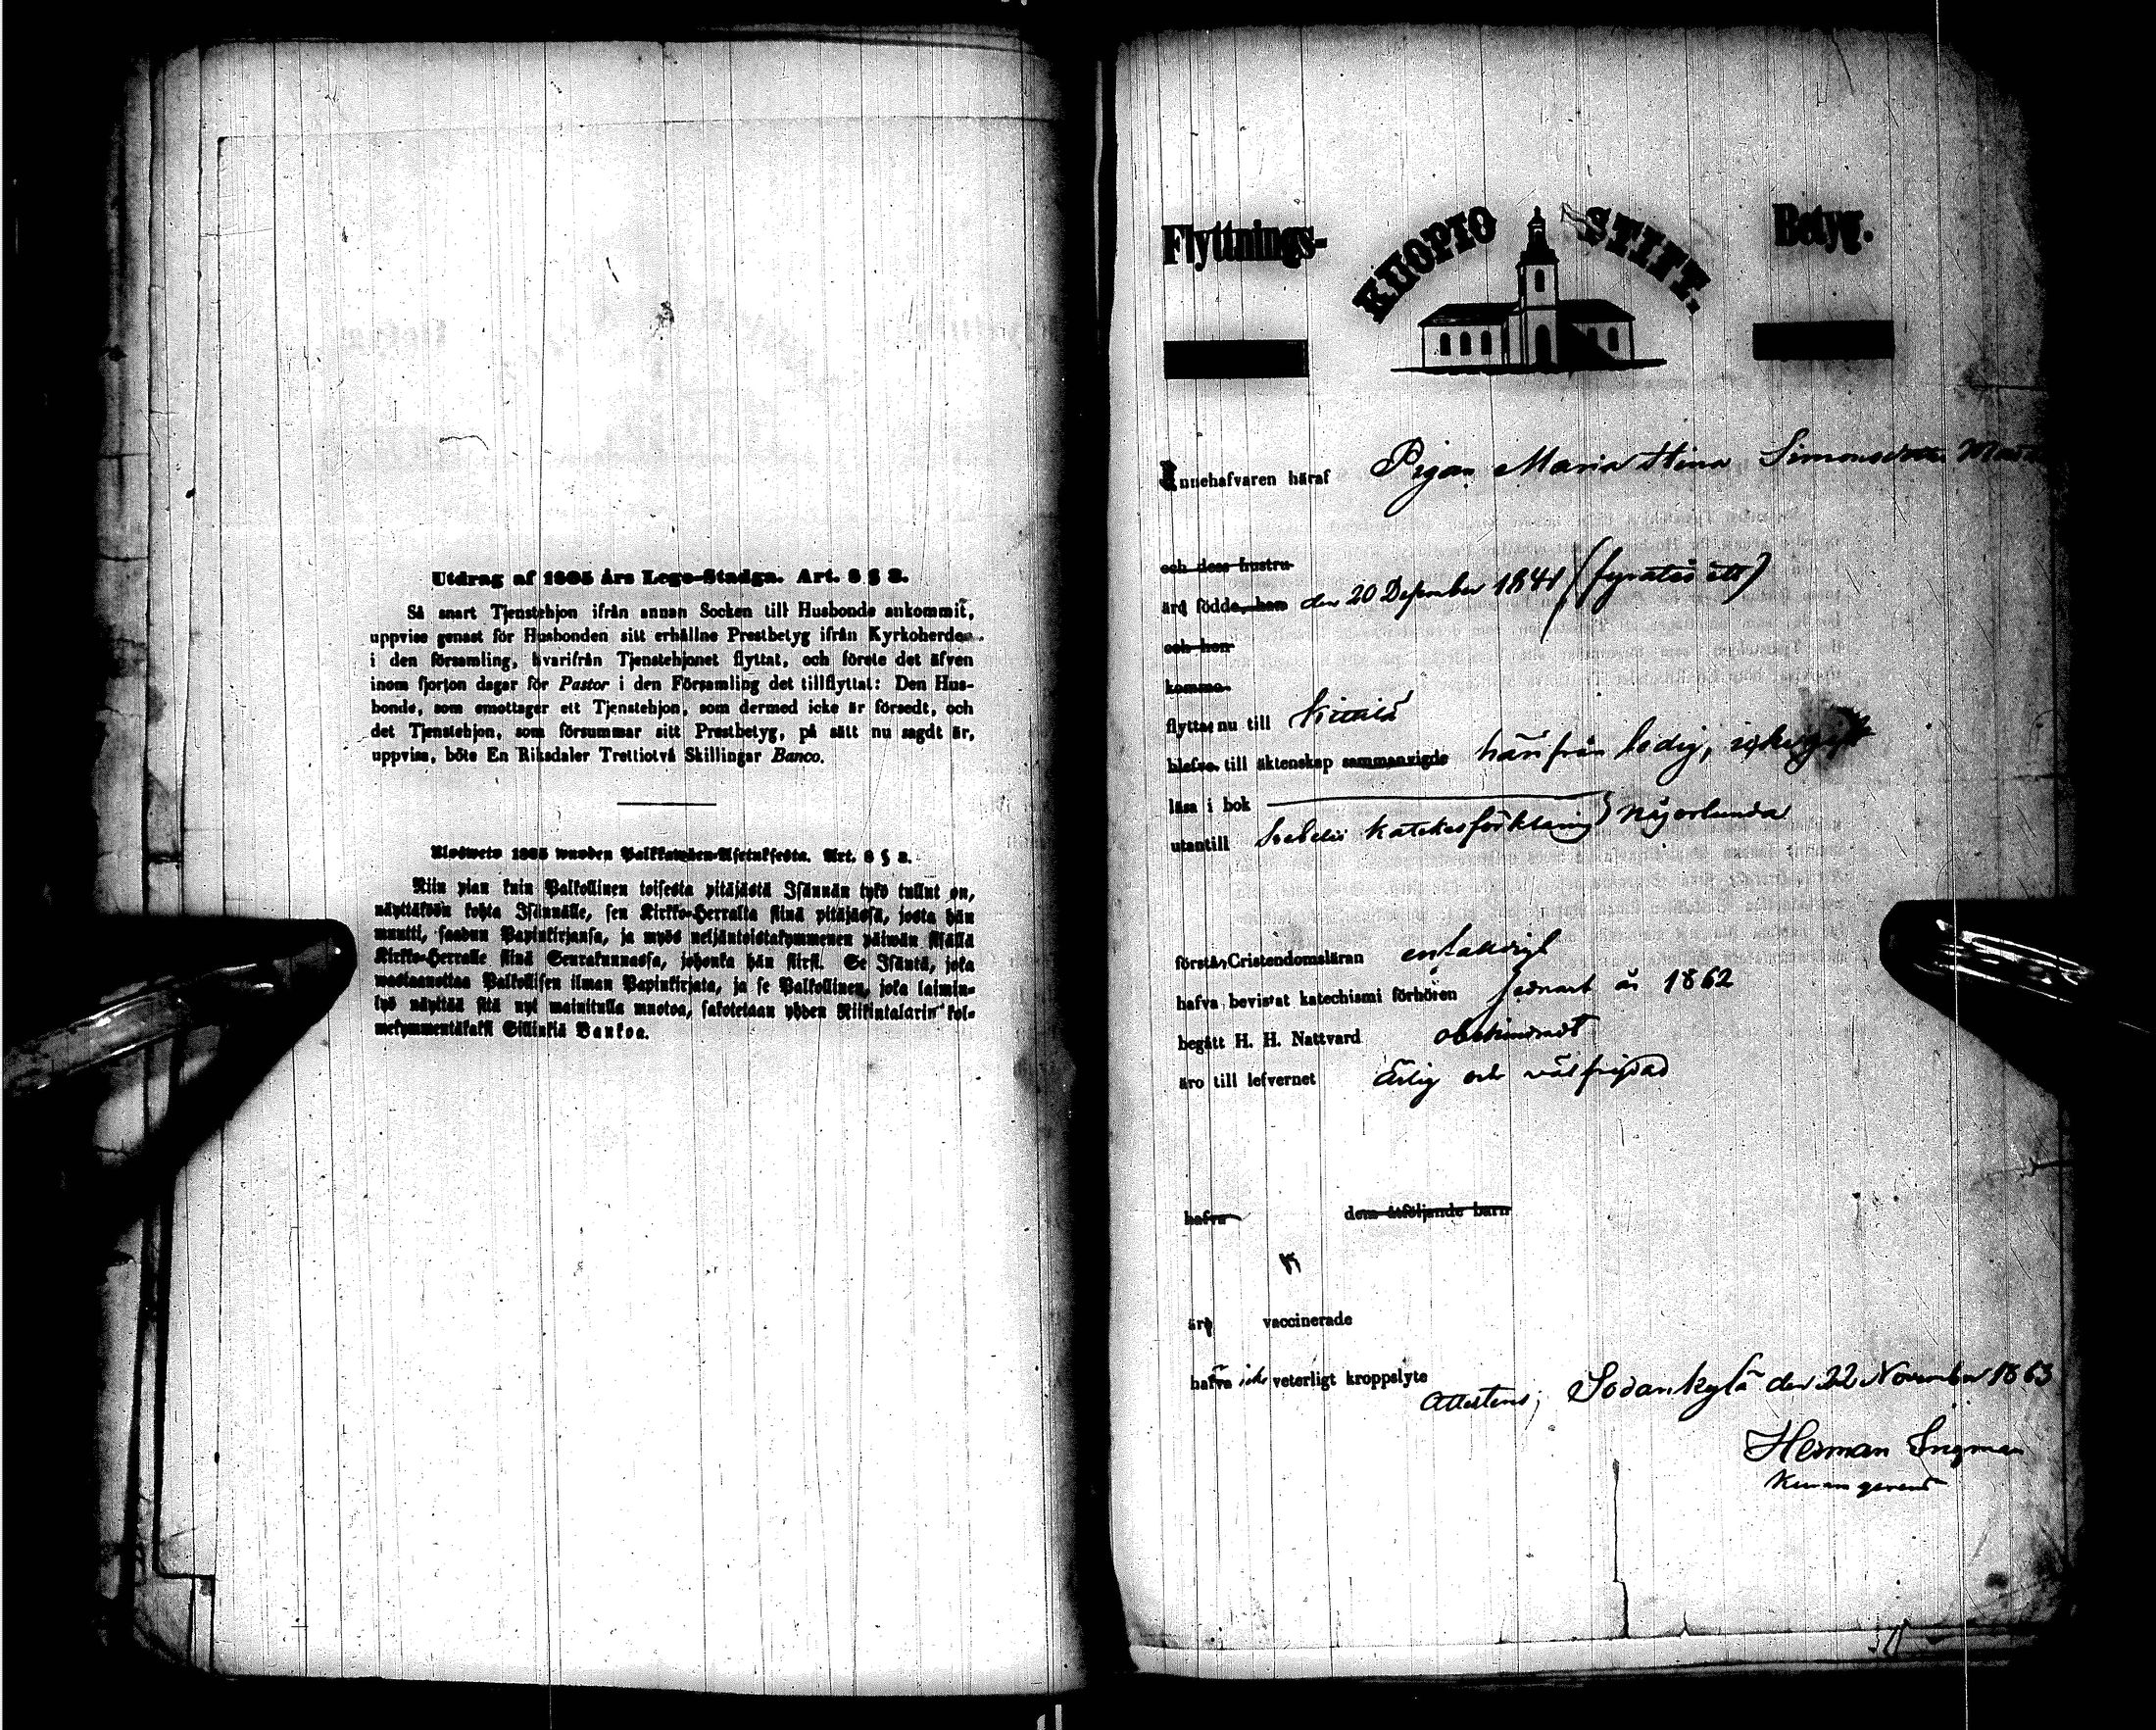 Utdrag af 1805 års Lego-Stadga. Art. 8 § 2.
Så snart Tjenstehjon ifrån annan Socken till Husbonde ankommit,
uppvise genast för Husbonden sitt erhållne Prestbetyg ifrån Kyrkoherden
i den församling, hvarifrån Tjenstehjonet flyttat, och förete det äfven
inom fjorton dagar för Pastor i den Församling det tillflyttat: Den Hus-
bonde, som emottager ett Tjenstehjon, som dermed icke är försedt, och
det Tjenstehjon, som försummar sitt Prestbetyg, på sätt nu sagdt är,
uppvisa, böte En Riksdaler Trettiotvå Skillingar Banco.
Ulosweto 1805 wuoden Palkkawäen-Asetuksesta. Art. 8 § 2.
Niin pian kuin Palkollinen toisesta pitäjästä Isännän tykö tullut on,
näyttäköön kohta Isännälle, sen Kirkko-Herralta siinä pitäjässä, josta hän
muutti, saadun Papinkirjansa, ja myös neljäntoistakymmenen päiwän sisällä
Kirkko-Herralle siinä Seurakunnassa, johonka hän siirsi. Se Isäntä, joka
wastaanottaa Palkollisen ilman Papinkirjata, ja se Palkollinen, joka laimin-
lyö näyttää sitä nyt mainitulla muotoa, sakotetaan yhden Riikintalarin kol-
mekymmentäkaksi Sillinkiä Bankoa.
Flyttnings- KUOPIO STIFT. Betyg.
Innehafvaren häraf Pigan Maria Stina Simonsdotter
och dess hustru
äro födde, han den 20 December 1841 (fyratio ett)
och hon
komma
flytta nu till Kittilä
blefvo till äktenskap sammanvigde härifrån ledig,
läsa i bok
utantill Svebelii Katekesförklaring} någorlunda
förstå Cristendomsläran enfaldigt
hafva bevistat katechismi förhören senast år 1862
begått H. H. Nattvard obehindradt
äro till lefvernet ärlig och välfrejdad
hafva dem åtföljande barn
äro vaccinerade
hafva icke veterligt kroppslyte
Attesteras; Sodankylä den 22 November 1863
Herman Ingman